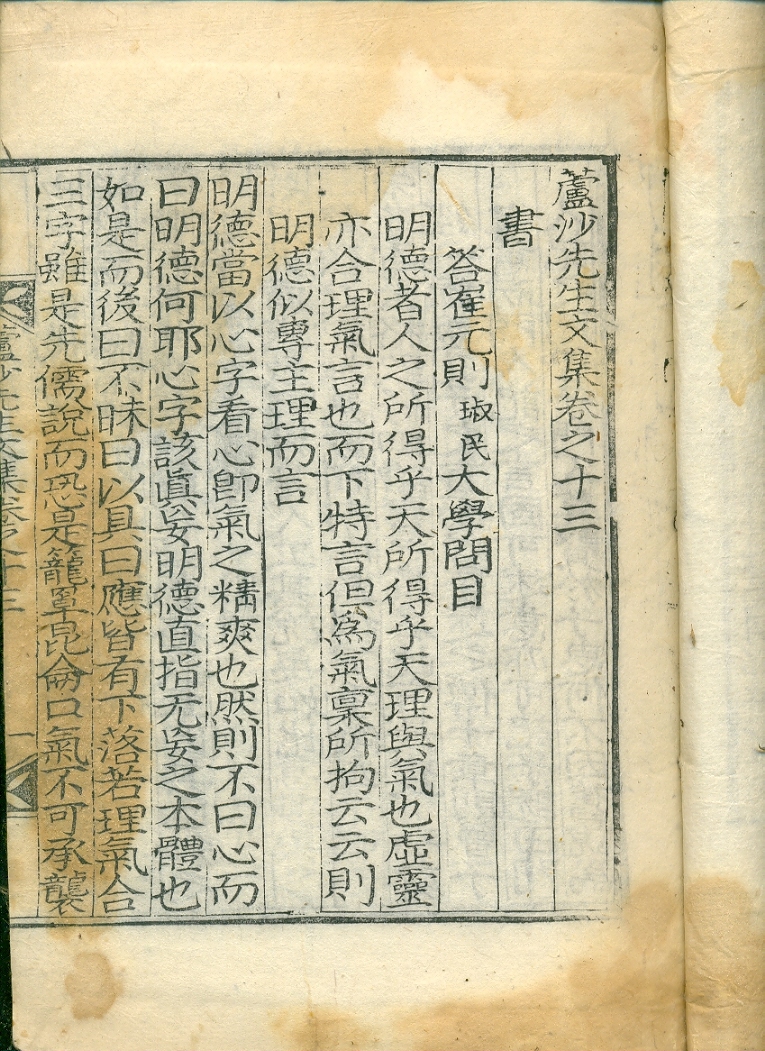 蘆沙先生文集卷之十三
書
答崔元則琡民大學問目
明德者人之所得乎天所得乎天理與氣也虛靈
亦合理氣言也而下特言但爲氣稟所拘云云則
明德似專主理而言
明德當以心字看心卽氣之精爽也然則不曰心而
曰明德何耶心字該眞妄明德直指无妄之本體也
如是而後曰不昧曰以具曰應皆有下落若理氣合
三字雖是先儒說而恐是籠罩昆侖口氣不可承襲
蘆沙先生文集卷之十三 一